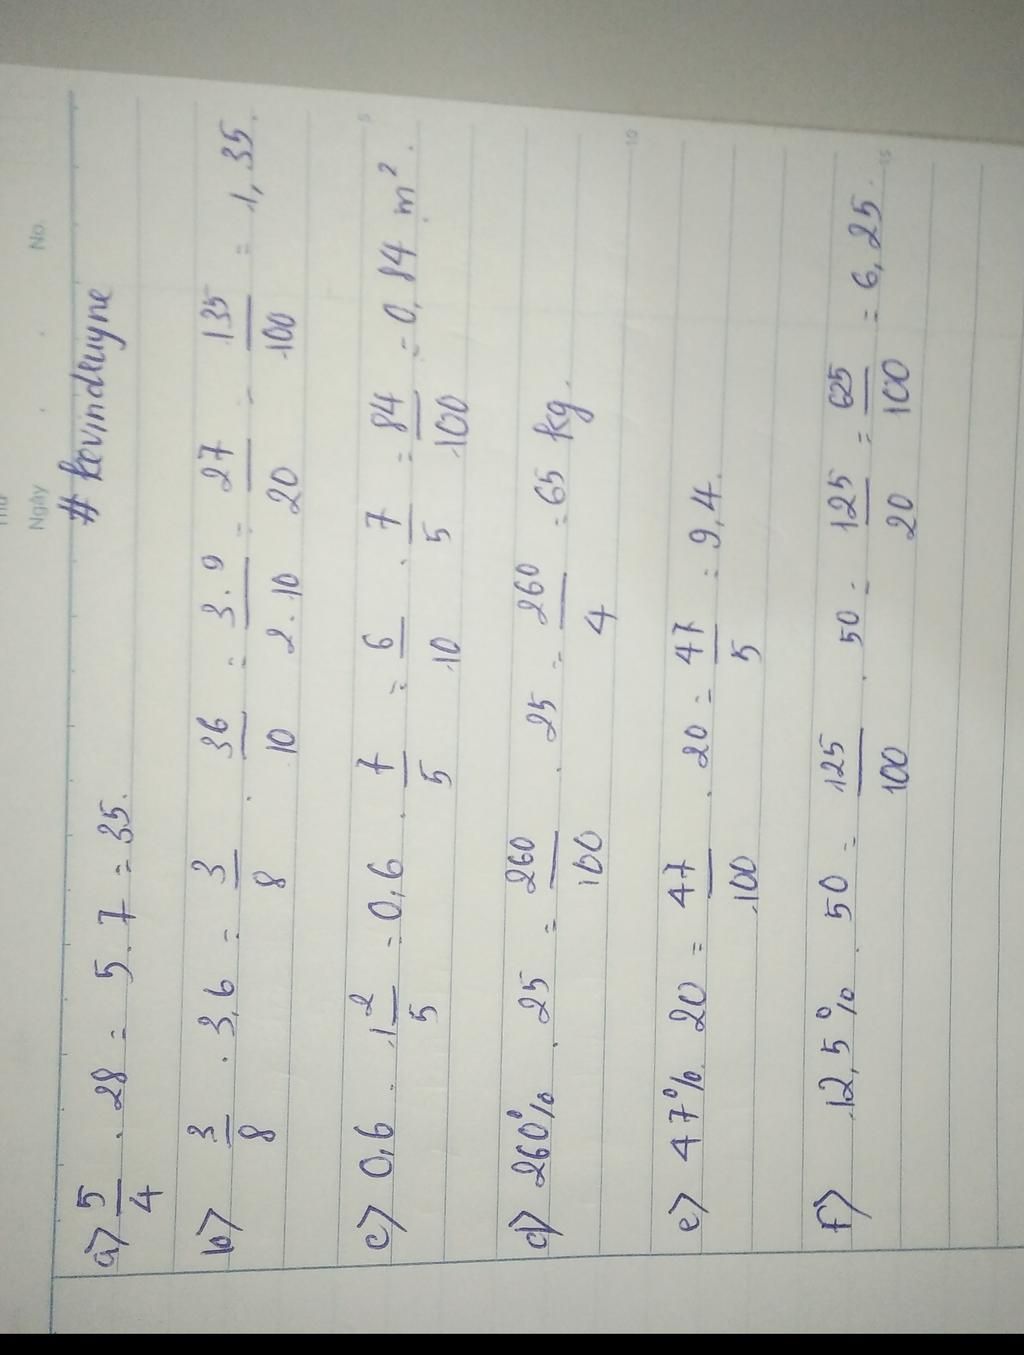 Thứ
Ngày . . No.
# kevindruyne
a) 5/4 . 28 = 5 . 7 = 35.
b) 3/8 . 3,6 = 3/8 . 36/10 = 3.9/2.10 = 27/20 = 135/100 = 1,35.
c) 0,6 . 1 2/5 = 0,6 . 7/5 = 6/10 . 7/5 = 84/100 = 0,84 m².
5
d) 260% . 25 = 260/100 . 25 = 260/4 = 65 kg.
10
e) 47% . 20 = 47/100 . 20 = 47/5 = 9,4.
f) 12,5% . 50 = 125/100 . 50 = 125/20 = 625/100 = 6,25.
15